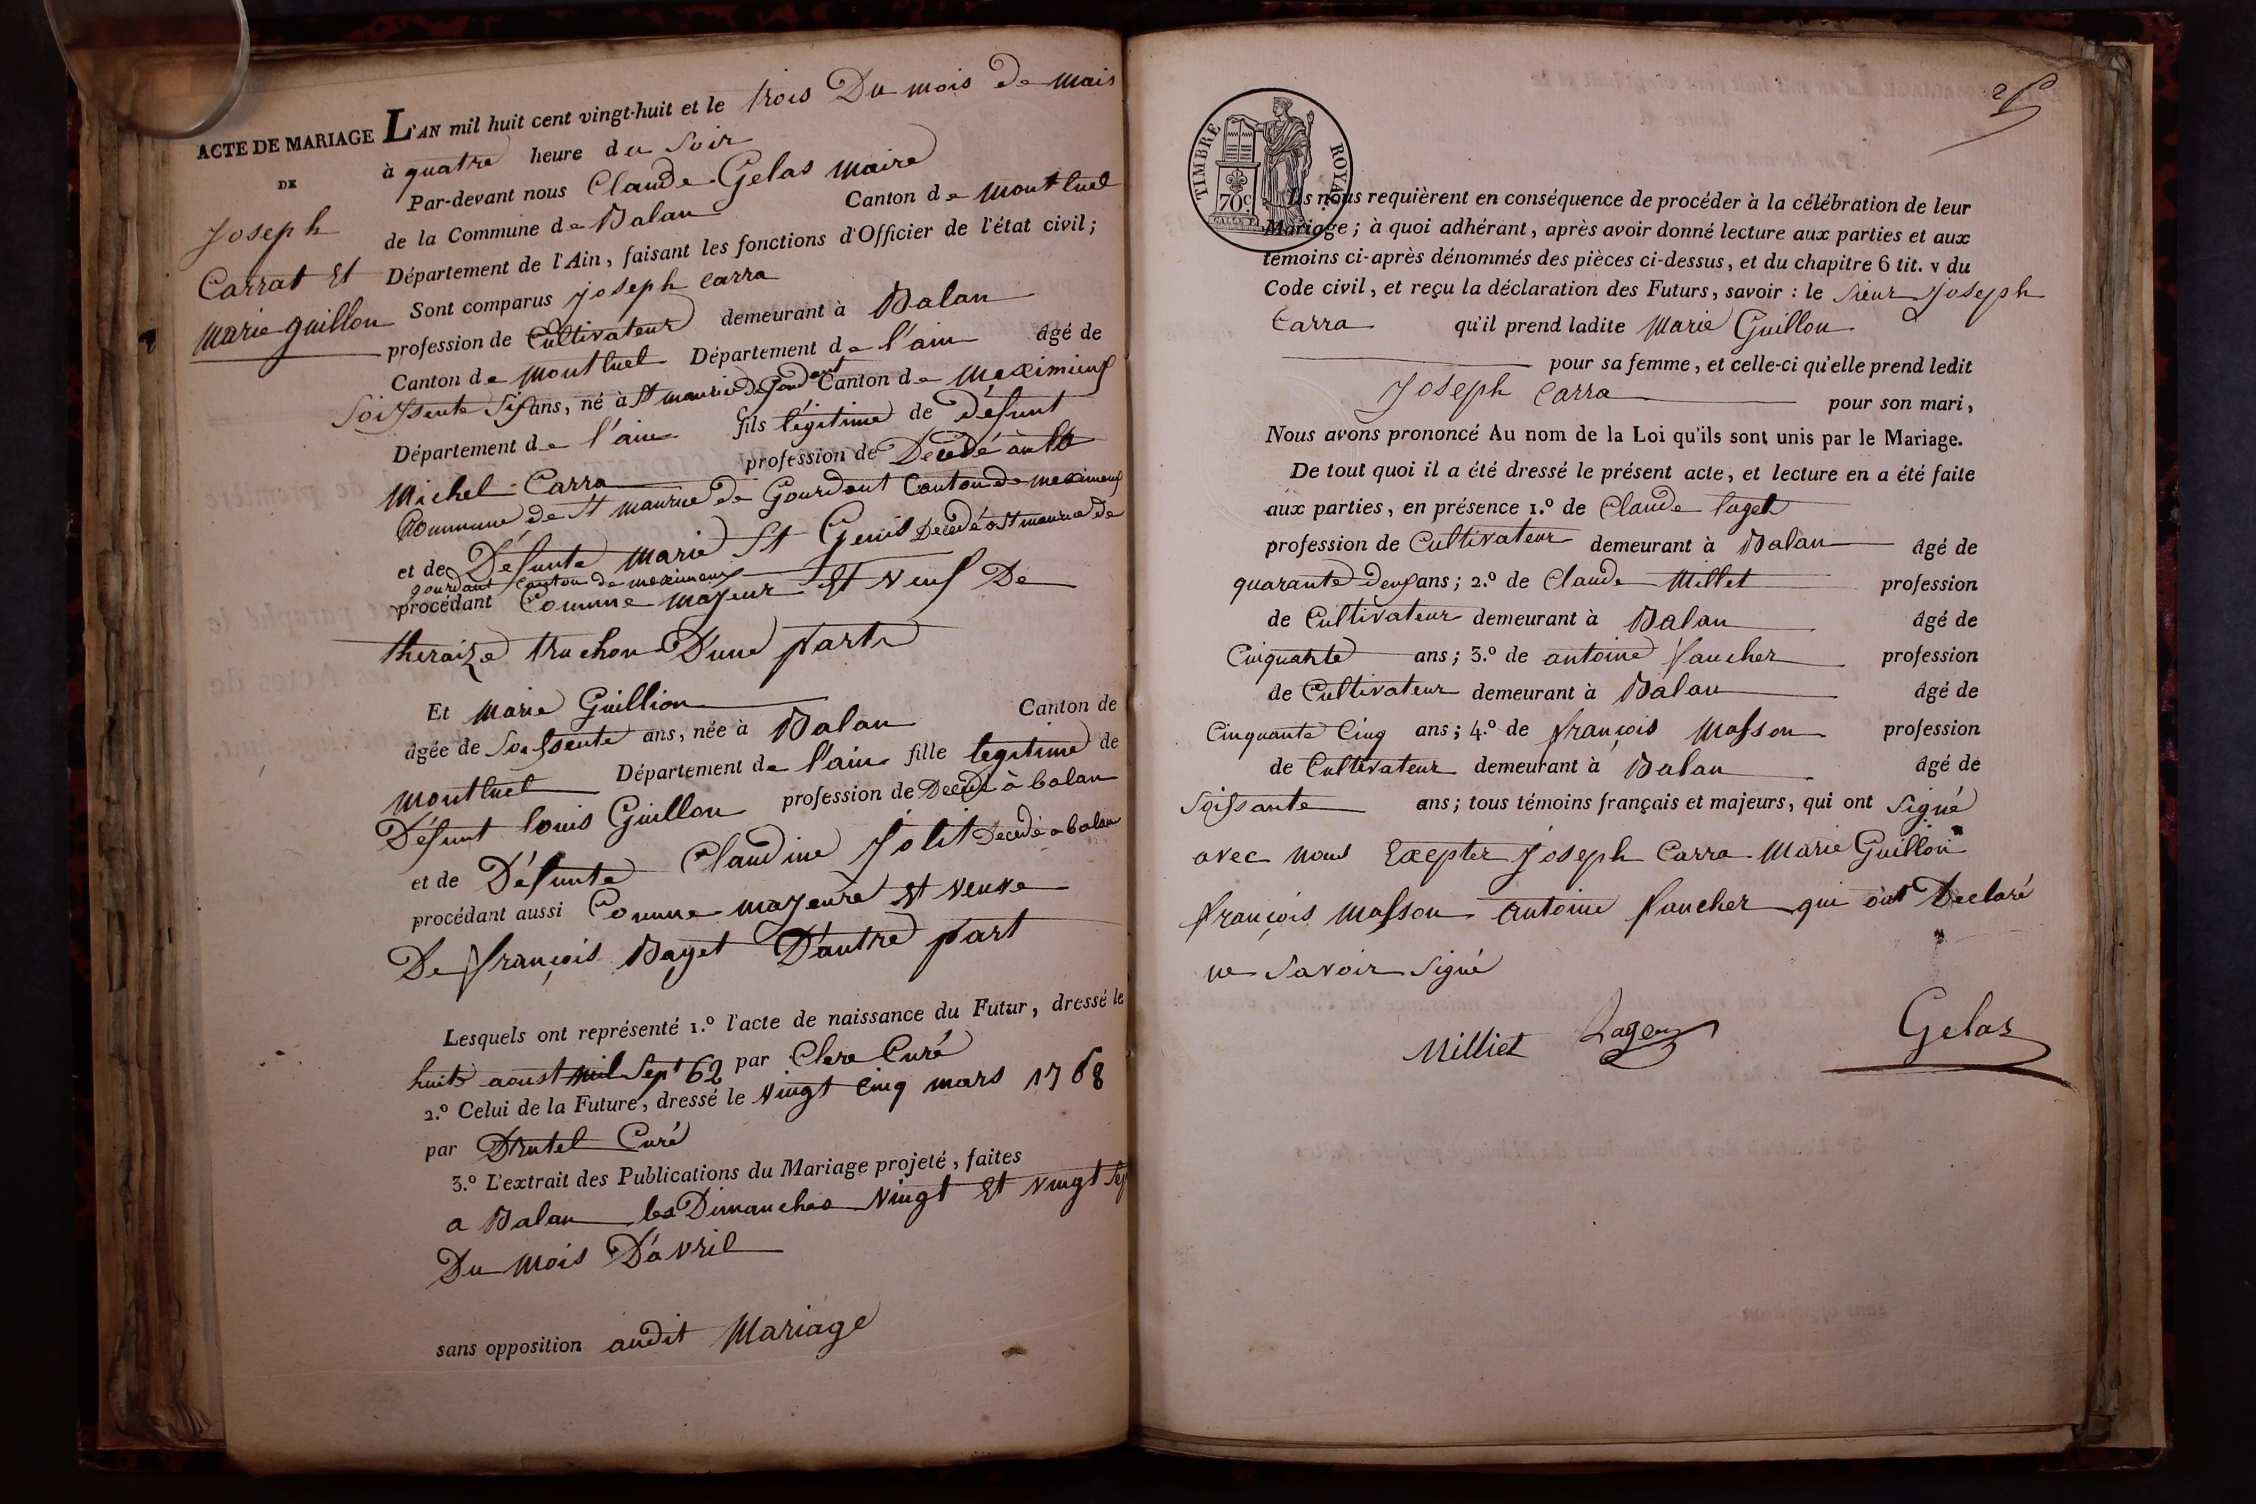 ACTE DE MARIAGE
DE
Joseph
Carrat Et
Marie Guillon
L'AN mil huit cent vingt-huit et le trois Du mois de mais
à quatre heure du Soir
Par-devant nous Claude Gelas maire
de la Commune de Balan Canton de montluel
Département de l'Ain, faisant les fonctions d'Officier de l'état civil;
Sont comparus joseph Carra
profession de Cultivateur demeurant à Balan
Canton de montluel Département de l'ain âgé de
Soissente Six ans, né à St maurice de Gourdant Canton de meximieux
Département de l'ain fils légitime de défunt
Michel Carra profession de Décédé
Commune de St maurice de Gourdant Canton de meximieux
et de Défunte marie St Genis Décédé a St maurice de
gourdant Canton de meximieux
procédant Comme majeur Et veuf De
theraize truchon D'une part
Et Marie Guillion
âgée de Soissente ans, née à Balan Canton de
montluel Département de l'ain fille legitime de
Défunt louis Guillon profession de Décédé à balan
et de Défunte Claudine Jolit Décédé a balan
procédant aussi Comme majeure Et veuve
De françois Baget D'autre part
Lesquels ont représenté 1.º l'acte de naissance du Futur, dressé le
huit aoust mil Sept 62 par Clere Curé
2.º Celui de la Future, dressé le vingt Cinq mars 1768
par Drutel Curé
3.º L'extrait des Publications du Mariage projeté, faites
a Balan les Dimanches vingt Et vingt Sep
Du mois D'avril
sans opposition audit Mariage
TIMBRE ROYAL
70c
Ils nous requièrent en conséquence de procéder à la célébration de leur
Mariage; à quoi adhérant, après avoir donné lecture aux parties et aux
témoins ci-après dénommés des pièces ci-dessus, et du chapitre 6 tit. v du
Code civil, et reçu la déclaration des Futurs, savoir: le Sieur Joseph
Carra qu'il prend ladite Marie Guillon
pour sa femme, et celle-ci qu'elle prend ledit
Joseph Carra pour son mari,
Nous avons prononcé Au nom de la Loi qu'ils sont unis par le Mariage.
De tout quoi il a été dressé le présent acte, et lecture en a été faite
aux parties, en présence 1.º de Claude laget
profession de Cultivateur demeurant à Balan âgé de
quarante deux ans; 2.º de Claude Millet profession
de Cultivateur demeurant à Balan âgé de
Cinquante ans; 3.º de antoine faucher profession
de Cultivateur demeurant à Balan âgé de
Cinquante Cinq ans; 4.º de françois Masson profession
de Cultivateur demeurant à Balan âgé de
Soissante ans; tous témoins français et majeurs, qui ont Signé
avec nous Excepter Joseph Carra Marie Guillon
françois Masson Antoine faucher qui ont Declaré
ne Savoir Signé
Milliet Lager Gelas